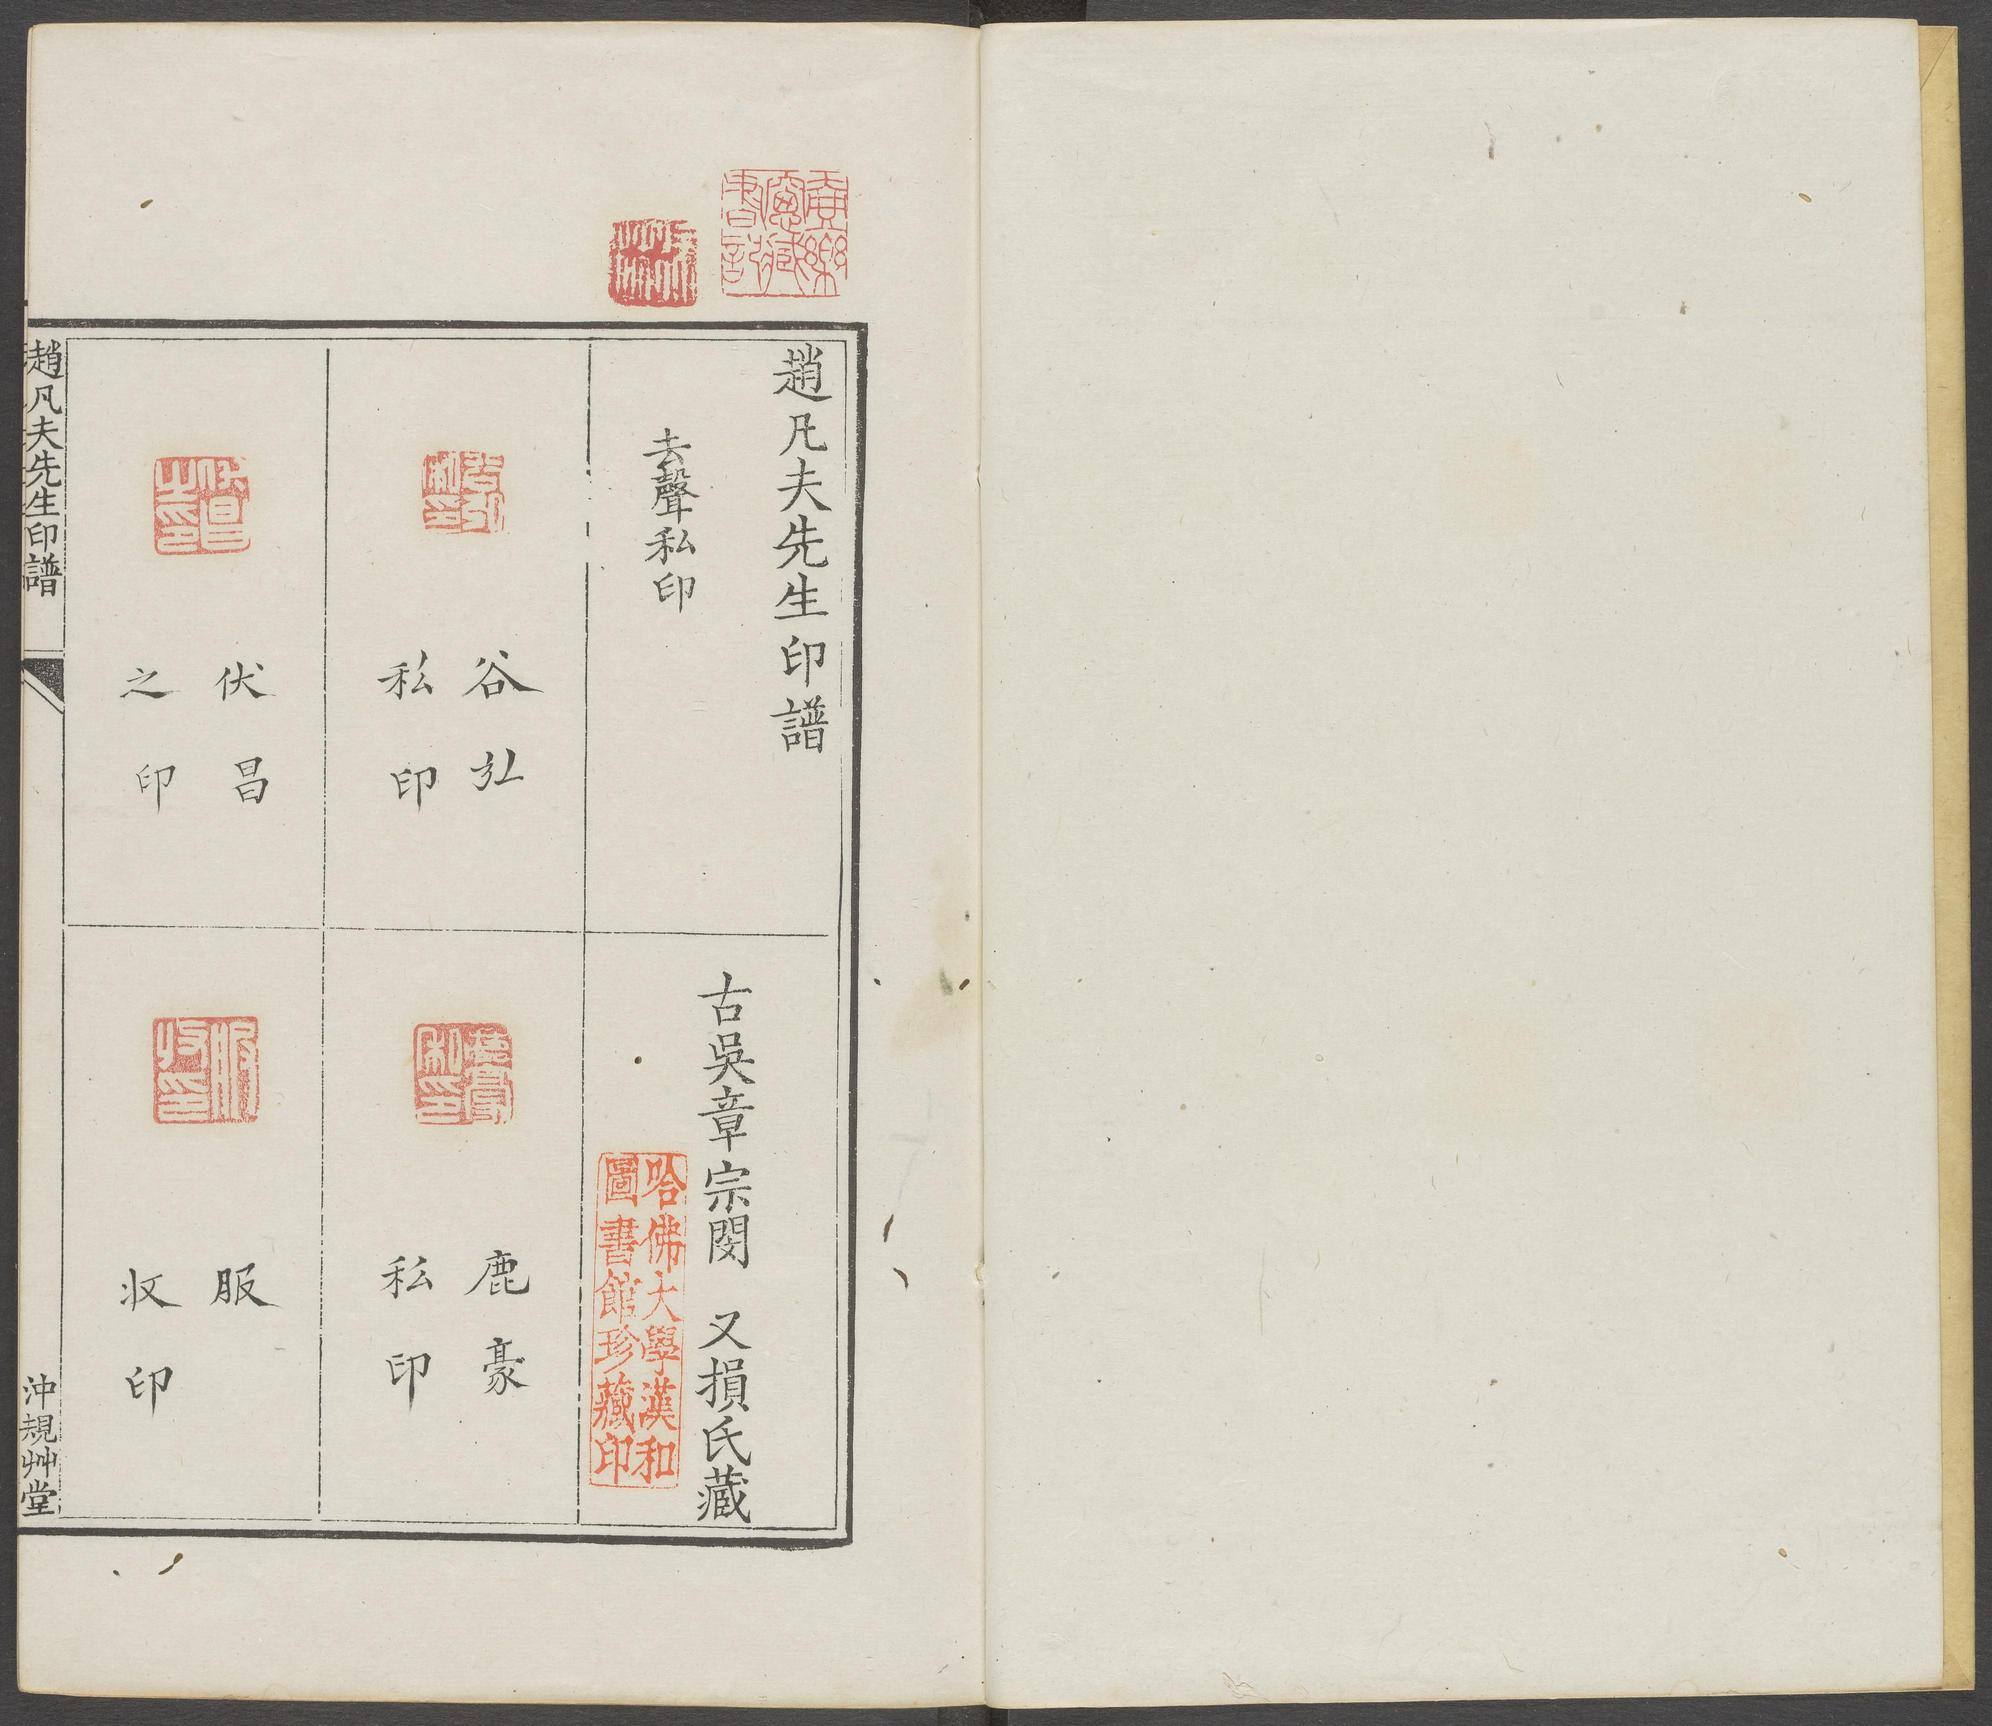 趙凡夫先生印譜
古吳章宗閔 又損氏藏
去聲私印
哈佛大學漢和
圖書館珍藏印
谷弘
私印
鹿豪
私印
伏昌
之印
服
收印
趙凡夫先生印譜
沖規艸堂